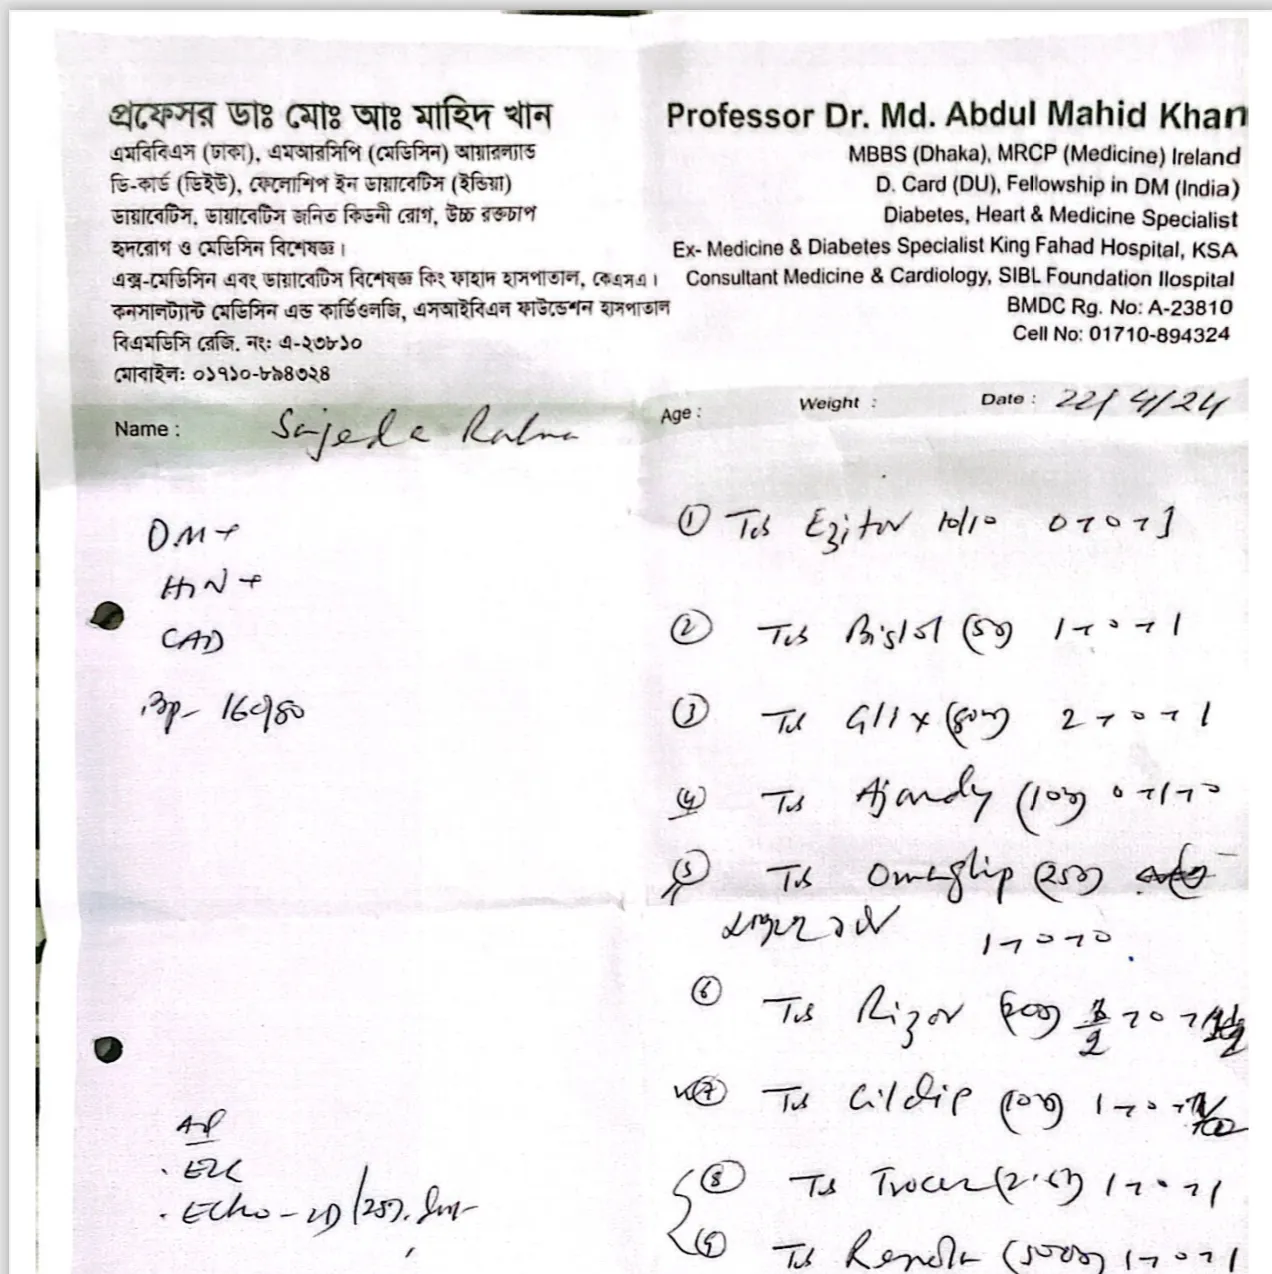 প্রফেসর ডাঃ মোঃ আঃ মাহিদ খান
এমবিবিএস (ঢাকা), এমআরসিপি (মেডিসিন) আয়ারল্যান্ড
ডি-কার্ড (ডিইউ), ফেলোশিপ ইন ডায়াবেটিস (ইন্ডিয়া)
ডায়াবেটিস, ডায়াবেটিস জনিত কিডনী রোগ, উচ্চ রক্তচাপ
হৃদরোগ ও মেডিসিন বিশেষজ্ঞ।
এক্স-মেডিসিন এবং ডায়াবেটিস বিশেষজ্ঞ কিং ফাহাদ হাসপাতাল, কেএসএ।
কনসালট্যান্ট মেডিসিন এন্ড কার্ডিওলজি, এসআইবিএল ফাউন্ডেশন হাসপাতাল
বিএমডিসি রেজি. নং: এ-২৩৮১০
মোবাইল: ০১৭১০-৮৯৪৩২৪
Professor Dr. Md. Abdul Mahid Khan
MBBS (Dhaka), MRCP (Medicine) Ireland
D. Card (DU), Fellowship in DM (India)
Diabetes, Heart & Medicine Specialist
Ex- Medicine & Diabetes Specialist King Fahad Hospital, KSA
Consultant Medicine & Cardiology, SIBL Foundation Ilospital
BMDC Rg. No: A-23810
Cell No: 01710-894324
Name : Sajeda Age : Weight : Date : 22/4/24
DM +
HTN +
CAD
BP- 160/80
① Tab Ezitor 10/10 0 + 0 + 1
② Tab 1 + 0 + 1
③ Tab 2 + 0 + 1
④ Tab 0 + 1 + 0
⑤ Tab Omaglip
1 + 0 + 0
⑥ Tab Rizor
⑦ Tab Cildip
⑧ Tab 1 + 0 + 1
⑨ Tab 1 + 0 + 1
Echo - 2D